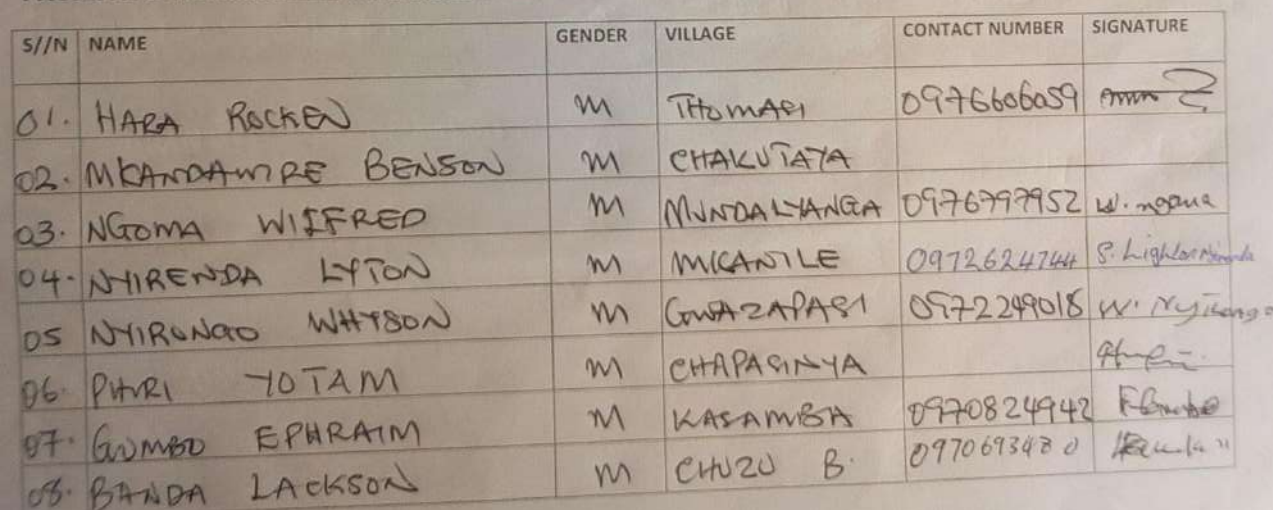 S//N NAME GENDER VILLAGE CONTACT NUMBER SIGNATURE
01. HARA ROCKEN M THOMASI 0976606059
02. MKANDAWIRE BENSON M CHAKUTAYA
03. NGOMA WILFRED M MUNDALYANGA 0976797952 W. ngoma
04. NYIRENDA LYTON M MKANILE 0972624744 S. Lighton
05 NYIRONGO WHYSON M GWAZAPASI 0972249018 W. Nyirongo
06. PHIRI YOTAM M CHAPASINYA
07. GUMBO EPHRAIM M KASAMBA 0970824942
08. BANDA LACKSON M CHUZU B. 097069348 0